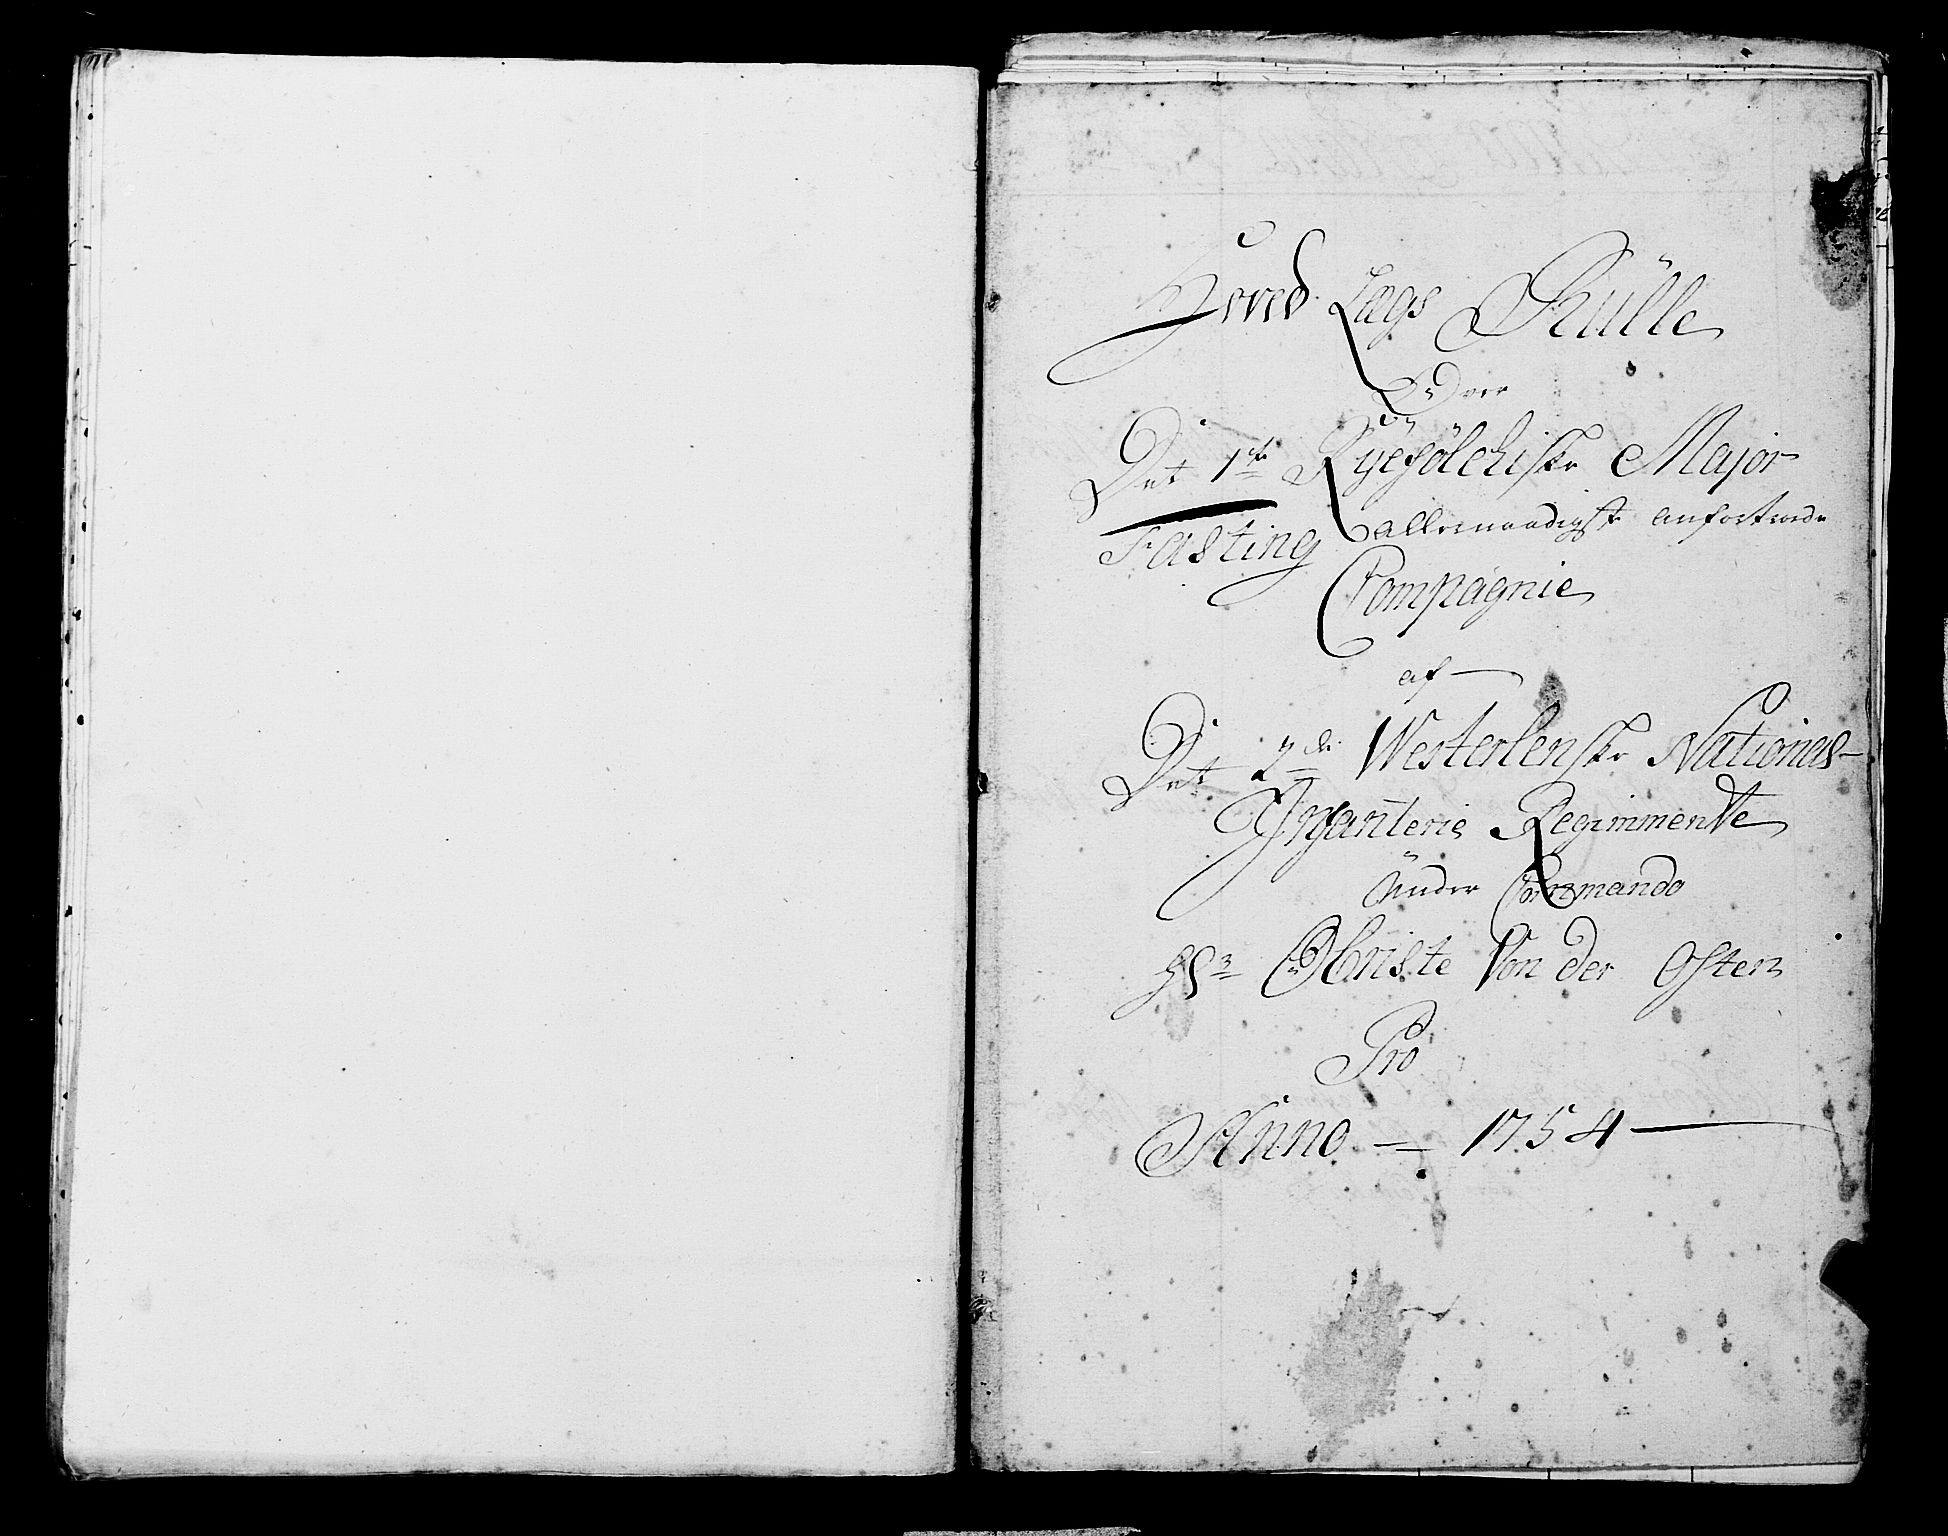 Hoved Lægs Rülle
Over
Det 1ste Ryefölchiske Major
Fasting allernaadigst anfortroede
Compagnie
af
Det 2de Westerlenske National
Infanterie Regimmente
Under Commando
Hr Obriste Von der Osten
Pro
Anno 1754